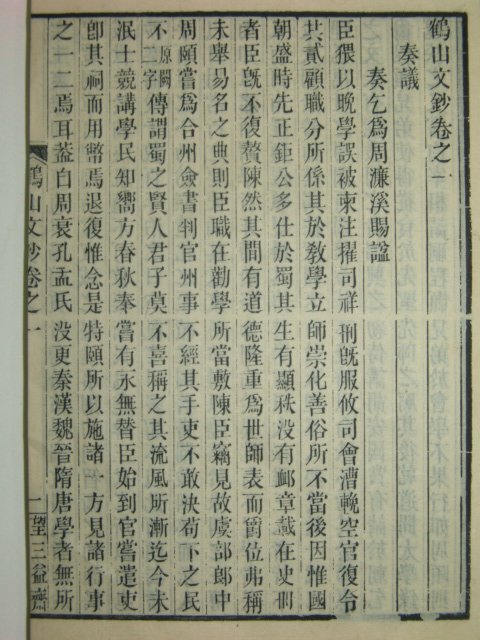 鶴山文鈔卷之一
奏議
奏乞爲周濂溪賜謚
臣猥以晚學誤被柬注擢司祥刑旣服攸司會漕輓空官復令
共貳顧職分所係其於敎學立師崇化善俗所不當後因惟國
朝盛時先正鉅公多仕於蜀其生有顯秩没有卹章載在史冊
者臣旣不復贅陳然其間有道德隆重爲世師表而爵位弗稱
未舉易名之典則臣職在勸學所當敷陳臣竊見故虞部郎中
周頤嘗爲合州僉書判官州事不經其手吏不敢決苟下之民
不原闕二字傳謂蜀之賢人君子莫不喜稱之其流風所漸迄今未
泯士競講學民知嚮方春秋奉嘗有永無替臣始到官嘗遣吏
卽其祠而用幣焉退復惟念是特頤所以施諸一方見諸行事
之一二焉耳蓋自周衰孔孟氏没更秦漢魏晉隋唐學者無所
鶴山文鈔卷之一
一
望三益齋